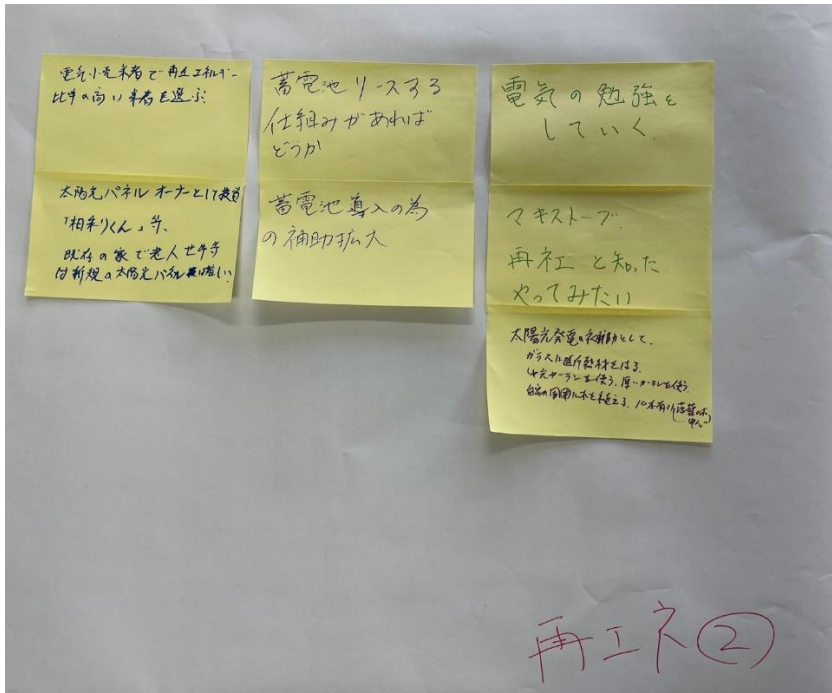 電気小売業者で再生エネルギー
比率の高い業者を選ぶ。
太陽光パネルオーナーとして投資
「相乗りくん」等、
既存の家で老人世帯等
は新規の太陽光パネルは難しい。
蓄電池リースする
仕組みがあれば
どうか
蓄電池導入の為
の補助拡大
電気の勉強を
していく。
マキストーブ。
再エネと知った
やってみたい
太陽光発電の補助として、
ガラスに遮熱材をはる。
カーテンを使う、厚いカーテンを使う。
自宅の周囲に木を植える、10本有り
再エネ②